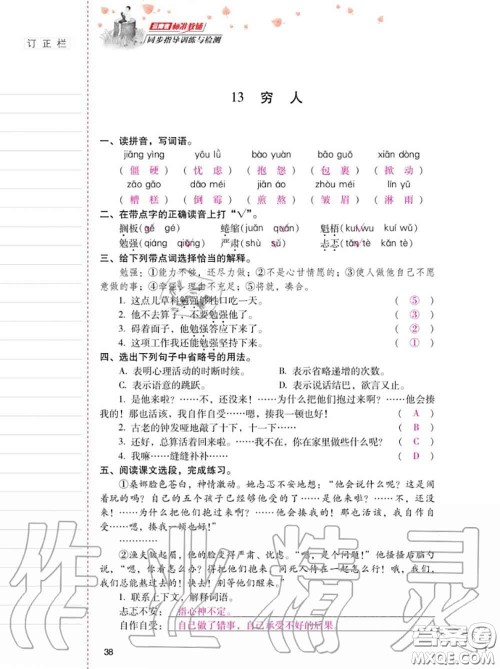 订正栏
云南省标准教辅
同步指导训练与检测
13 穷 人
一、读拼音，写词语。
jiāng yìng yōu lǜ bào yuàn bāo guǒ xiān dòng
（ 僵硬 ）（ 忧虑 ）（ 抱怨 ）（ 包裹 ）（ 掀动 ）
zāo gāo dǎo méi jiān áo zhòu méi lín yǔ
（ 糟糕 ）（ 倒霉 ）（ 煎熬 ）（ 皱眉 ）（ 淋雨 ）
二、在带点字的正确读音上打“√”。
搁板(gē gé) 蜷缩(juǎn quán) 魁梧(kuí wu kuí wú)
勉强(qiáng qiǎng) 严肃(shù sù) 忐忑(tǎn tè kǎn tè)
三、给下列带点词选择恰当的解释。
勉强：①能力不够，还尽力做。②不是心甘情愿的；③使人做他自己不愿
意做的事；④牵强，理由不充足；⑤将就，凑合。
1. 这点儿草料勉强够牲口吃一天。 （ ⑤ ）
2. 他不去算了，不要勉强他了。 （ ③ ）
3. 碍着面子，他勉强答应下来了。 （ ② ）
4. 这项工作我还能勉强坚持下来。 （ ① ）
四、选出下列句子中省略号的用法。
A. 表明心理活动的时断时续。 B. 表示省略递增的次数。
C. 表示语意的跳跃。 D. 表示说话结巴，欲言又止。
1. 是他来啦？……不，还没来！……为什么把他们抱过来啊？……他会揍
我的！那也活该，我自作自受……嗯，揍我一顿也好！ （ A ）
2. 古老的钟发哑地敲了十下，十一下…… （ B ）
3. 还好，总算活着回来啦。……我不在，你在家里做些什么呢？ （ C ）
4. 我嘛……缝缝补补…… （ D ）
五、阅读课文选段，完成练习。
①桑娜脸色苍白，神情激动。她忐忑不安地想：“他会说什么呢？这是闹
着玩的吗？自己的五个孩子已经够他受的了……是他来啦？……不，还没来！
……为什么把他们抱过来啊？……他会揍我的！那也活该，我自作自受……
嗯，揍我一顿也好！”
…………
②渔夫皱起眉，他的脸变得严肃、忧虑。“嗯，是个问题！”他搔搔后脑勺
说，“嗯，你看怎么办？得把他们抱来，同死人待在一起怎么行！哦，我们，我
们总能熬过去的！快去！别等他们醒来。”
1. 联系上下文，解释词语。
忐忑不安： 指心神不定。
自作自受： 自己做了错事，自己承受不好的后果
38
作业精灵
答案圈
MXQE.COM